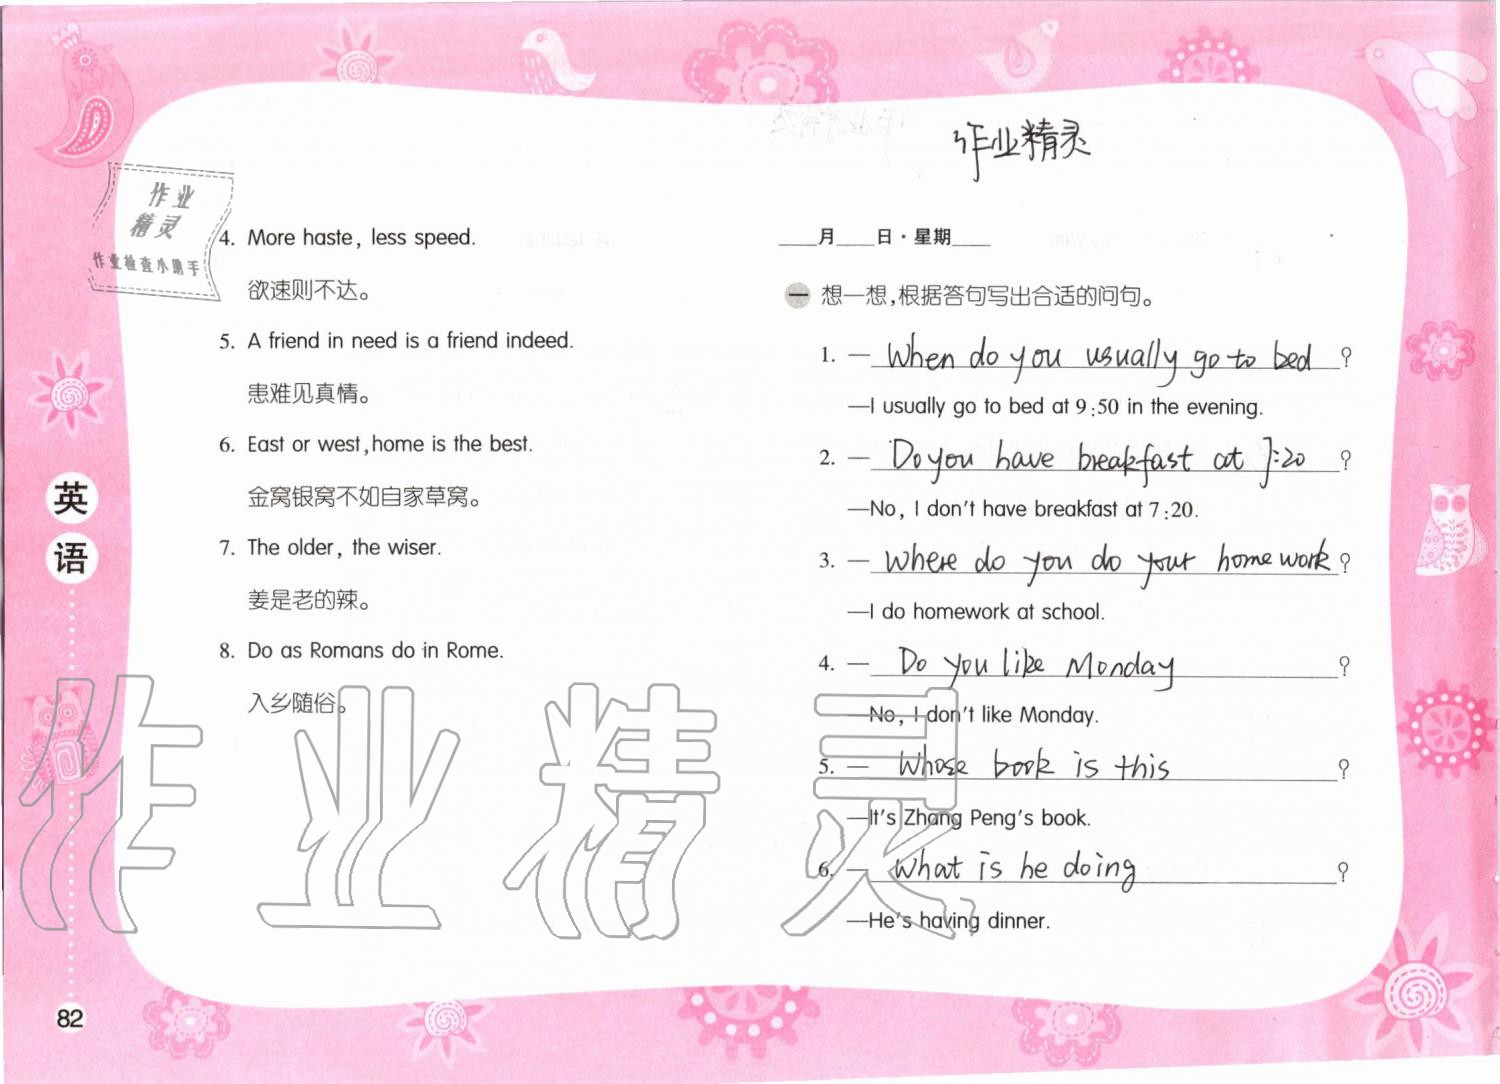 作业精灵
作业
精灵
作业检查小助手
4. More haste, less speed.
欲速则不达。
5. A friend in need is a friend indeed.
患难见真情。
6. East or west,home is the best.
金窝银窝不如自家草窝。
7. The older, the wiser.
姜是老的辣。
8. Do as Romans do in Rome.
入乡随俗。
英
语
82
____月____日·星期____
一 想一想,根据答句写出合适的问句。
1. — When do you usually go to bed ?
—I usually go to bed at 9:50 in the evening.
2. — Do you have breakfast at 7:20 ?
—No, I don't have breakfast at 7:20.
3. — Where do you do your homework ?
—I do homework at school.
4. — Do you like Monday ?
—No, I don't like Monday.
5. — Whose book is this ?
—It's Zhang Peng's book.
6. — What is he doing ?
—He's having dinner.
作业精灵